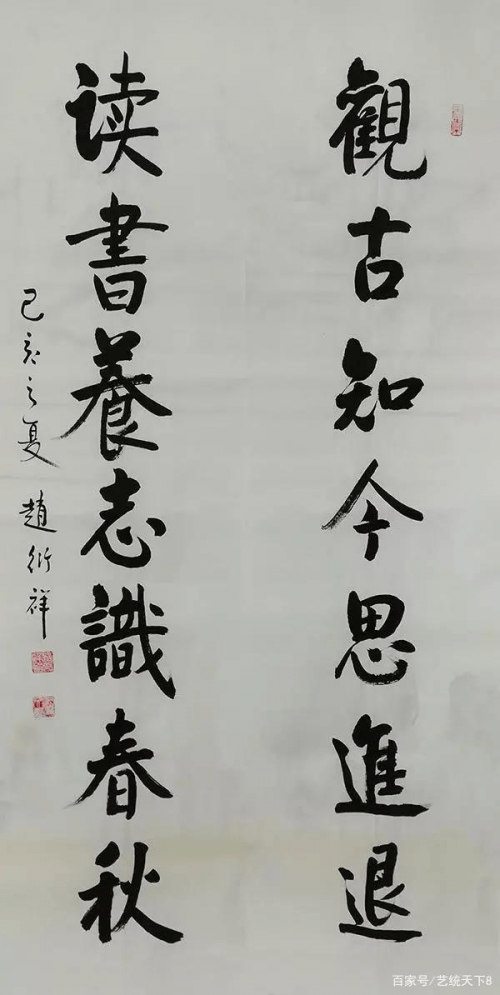 觀古知今思進退
读書養志識春秋
己亥之夏 趙衍祥
百家号/艺统天下8